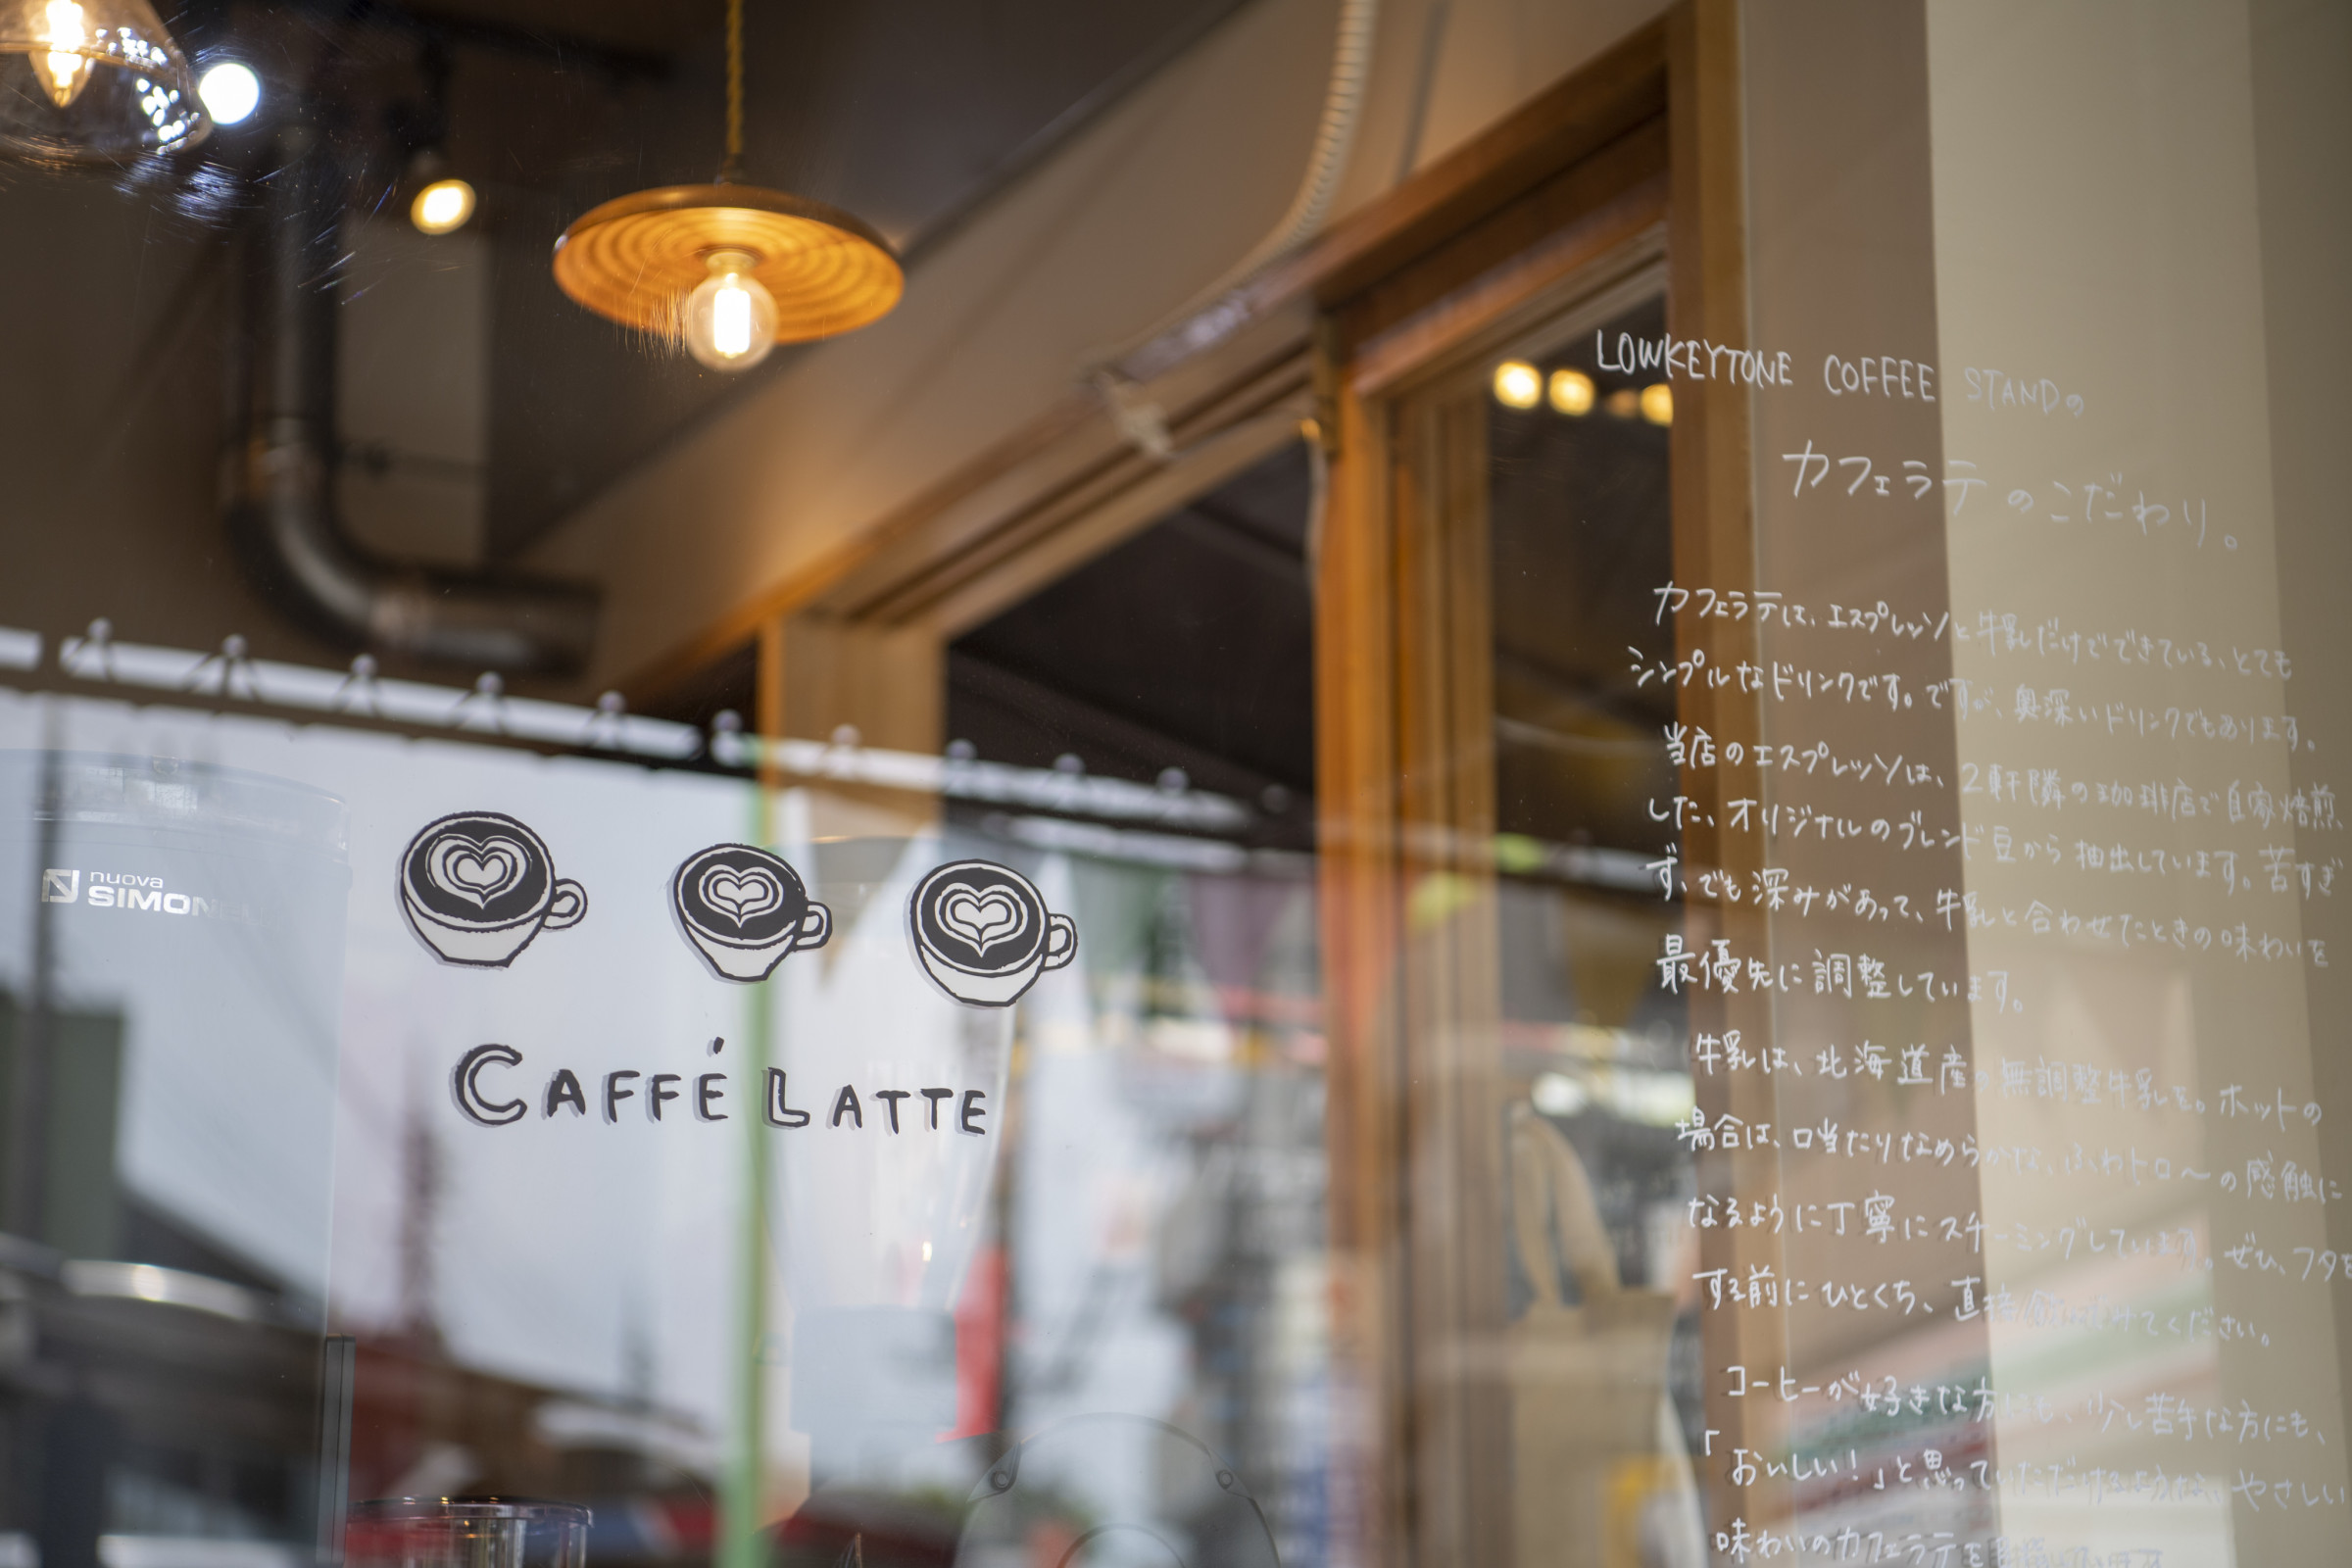 nuova
SIMON
CAFFÉ LATTE
LOWKEYTONE COFFEE STANDの
カフェラテのこだわり。
カフェラテは、エスプレッソと牛乳だけでできている、とても
シンプルなドリンクです。ですが、奥深いドリンクでもあります。
当店のエスプレッソは、2軒隣の珈琲店で自家焙煎
した、オリジナルのブレンド豆から抽出しています。苦すぎ
ず、でも深みがあって、牛乳と合わせたときの味わいを
最優先に調整しています。
牛乳は、北海道産の無調整牛乳を。ホットの
場合は、口当たりなめらかな、ふわトロ〜の感触に
なるように丁寧にスチーミングしています。ぜひ、フタを
する前にひとくち、直接飲んでみてください。
コーヒーが好きな方にも、少し苦手な方にも、
「おいしい!」と思っていただけるような、やさしい
味わいのカフェラテを